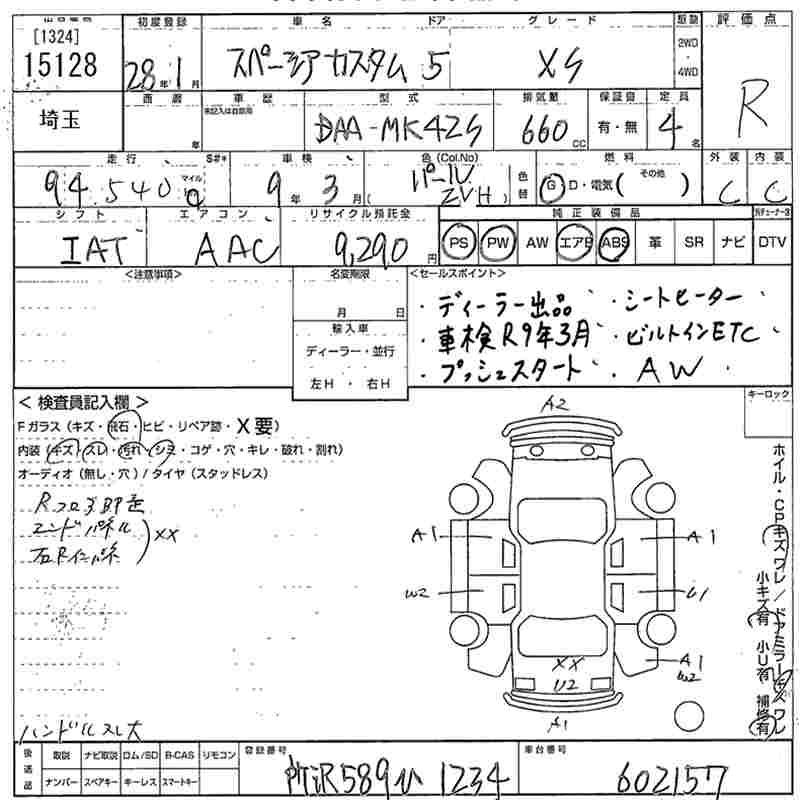 出品番号 初度登録 車名 ドア グレード 駆動 評価点
[1324]
15128 28年1月 スペーシアカスタム 5 XS 2WD・4WD R
埼玉 車歴 型式 排気量 保証書 定員
未記入は自家用
年 DAA-MK42S 660cc 有・無 4名
走行 S#* 車検 色(Col.No) 色替 燃料 外装 内装
94,540 マイル 9年3月 (パール ZVH) G D・電気( その他 ) C C
シフト エアコン リサイクル預託金 純正装備品
IAT AAC 9,290円 PS PW AW エアB ABS 革 SR ナビ DTV
<注意事項> 名変期限 <セールスポイント>
月 日
・ディーラー出品 ・シートヒーター
輸入車
・車検R9年3月 ・ビルトインETC
ディーラー・並行
・プッシュスタート ・AW
左H・右H
キーロック
<検査員記入欄>
Fガラス(キズ・飛石・ヒビ・リペア跡・X要)
内装(キズ・スレ・汚れ・シミ・コゲ・穴・キレ・破れ・割れ)
オーディオ(無し・穴)/タイヤ(スタッドレス)
エンドパネル
XX
A2
A1 A1
W2 U1
XX
U2
A1
W2
A1
ホイル・CPキズワレ/ドアミラーキズワレ
小キズ有 小U有 補修有
ハンドルスレ大
後送品 取説 ナビ取説 ロム/SD B-CAS リモコン 登録番号 車台番号
ナンバー スペアキー キーレス スマートキー
所沢589 い 1234 602157